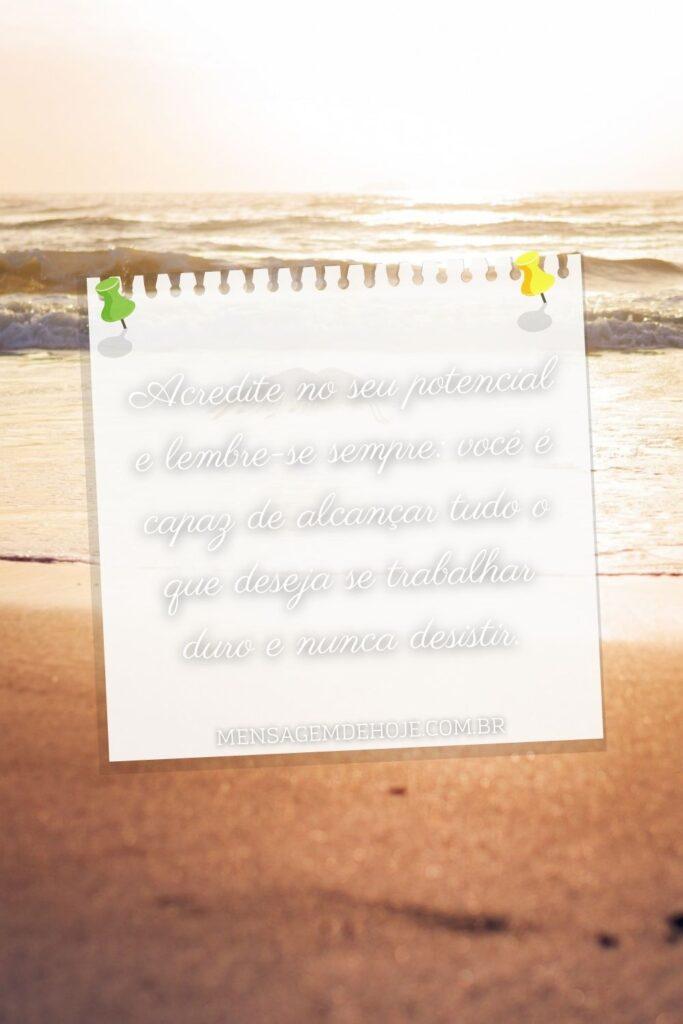 Acredite no seu potencial
e lembre-se sempre: você é
capaz de alcançar tudo o
que deseja se trabalhar
duro e nunca desistir.
MENSAGEMDEHOJE.COM.BR